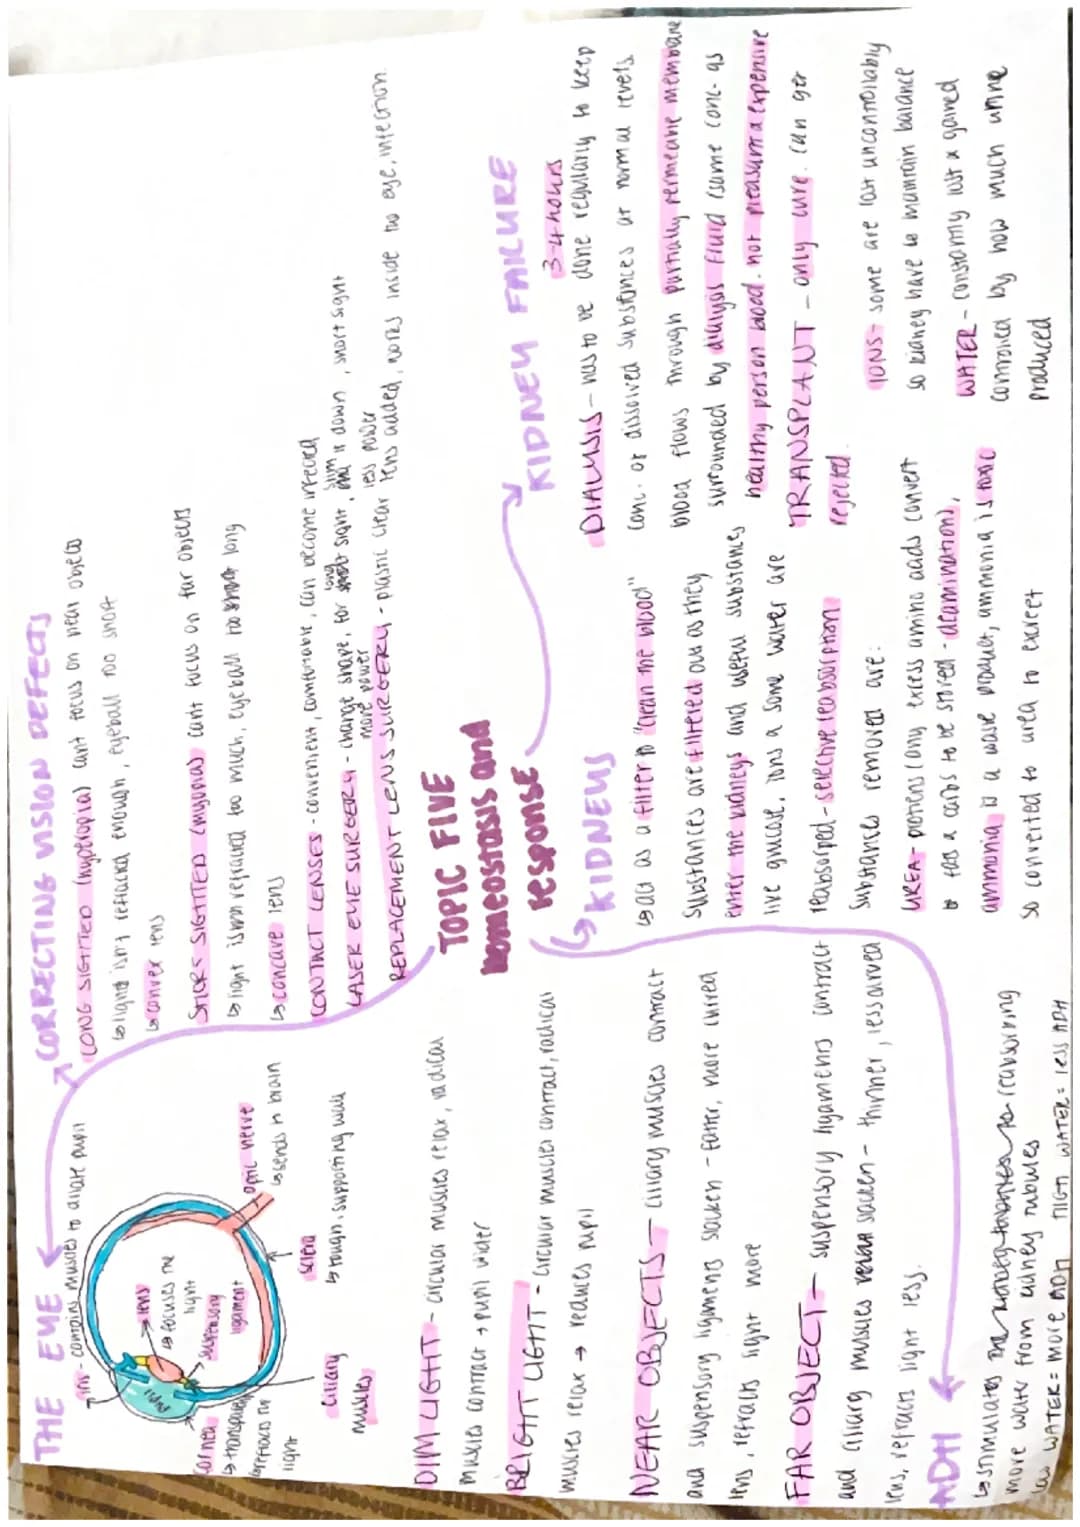 THE EYE
iris - contains muscles to dilate pupil
lens
↳ focuses the
light
pupil
suspensory
ligament
cornea
↳ transparent
refracts the
light
ciliary
muscles
sclera
↳ tough, supporting wall
optic nerve
↳ sends to brain
CORRECTING VISION DEFECTS
LONG SIGHTED (hyperopia) cant focus on near objects
↳ light isn't refracted enough, eyeball too short
↳ convex lens
SHORT SIGHTED (myopia) cant focus on far objects
↳ light is refracted too much, eyeball too long
↳ concave lens
CONTACT LENSES - convenient, comfortable, can become infected
LASER EYE SURGERY - change shape, for long sight, slim it down, short sight
more power
less power
REPLACEMENT LENS SURGERY - plastic clear lens added, works inside the eye, infection.
TOPIC FIVE
homeostasis and
response
DIM LIGHT - circular muscles relax, radical
muscles contract → pupil wider
BRIGHT LIGHT - circular muscles contract, radical
muscles relax → reduces pupil
NEAR OBJECTS - ciliary muscles contract
and suspensory ligaments slacken - fatter, more curved
lens, refracts light more
FAR OBJECT - suspensory ligaments contract
and ciliary muscles slacken - thinner, less curved
lens, refracts light less.
ADH
↳ stimulates reabsorbing
more water from kidney tubules
low WATER = more ADH HIGH WATER = less ADH
KIDNEYS
↳ act as a filter to "clean the blood"
substances are filtered out as they
enter the kidneys and useful substances
like glucose, ions & some water are
reabsorped - selective reabsorption
Substances removed are:
UREA - proteins (any excess amino acids convert
to fats & carbs to be stored - deamination),
ammonia is a waste product, ammonia is toxic
so converted to urea to excrete
KIDNEY FAILURE
3-4 hours
DIALYSIS - has to be done regularly to keep
conc. of dissolved substances at normal levels
blood flows through partially permeable membrane
surrounded by dialysis fluid (same conc. as
healthy person blood. not pleasum & expensive
TRANSPLANT - only cure. can get
rejected.
IONS - some are lost uncontrollably
so kidney have to maintain balance
WATER - constantly lost & gained
controlled by how much urine
produced